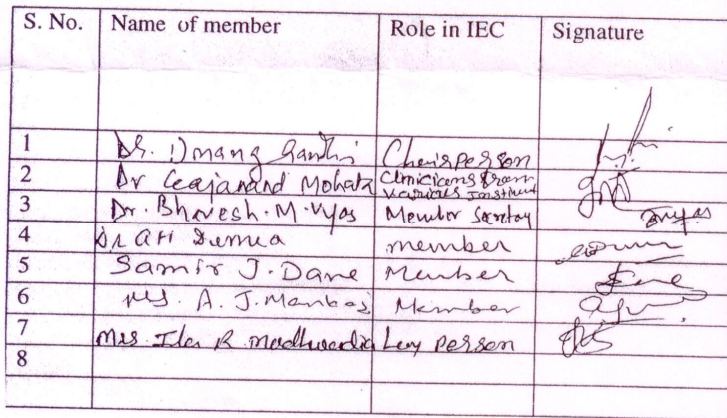 S. No. Name of member Role in IEC Signature
1 Dr. Umang Gandhi Chairperson
2 Dr Gajanand Mohata Clinicians from various Institut
3 Dr. Bhavesh. M. Vyas Member Secretary
4 Dr member
5 Samir J. Dave Member
6 A. J. Member
7 Mrs Ila R. madhwadia Lay person
8